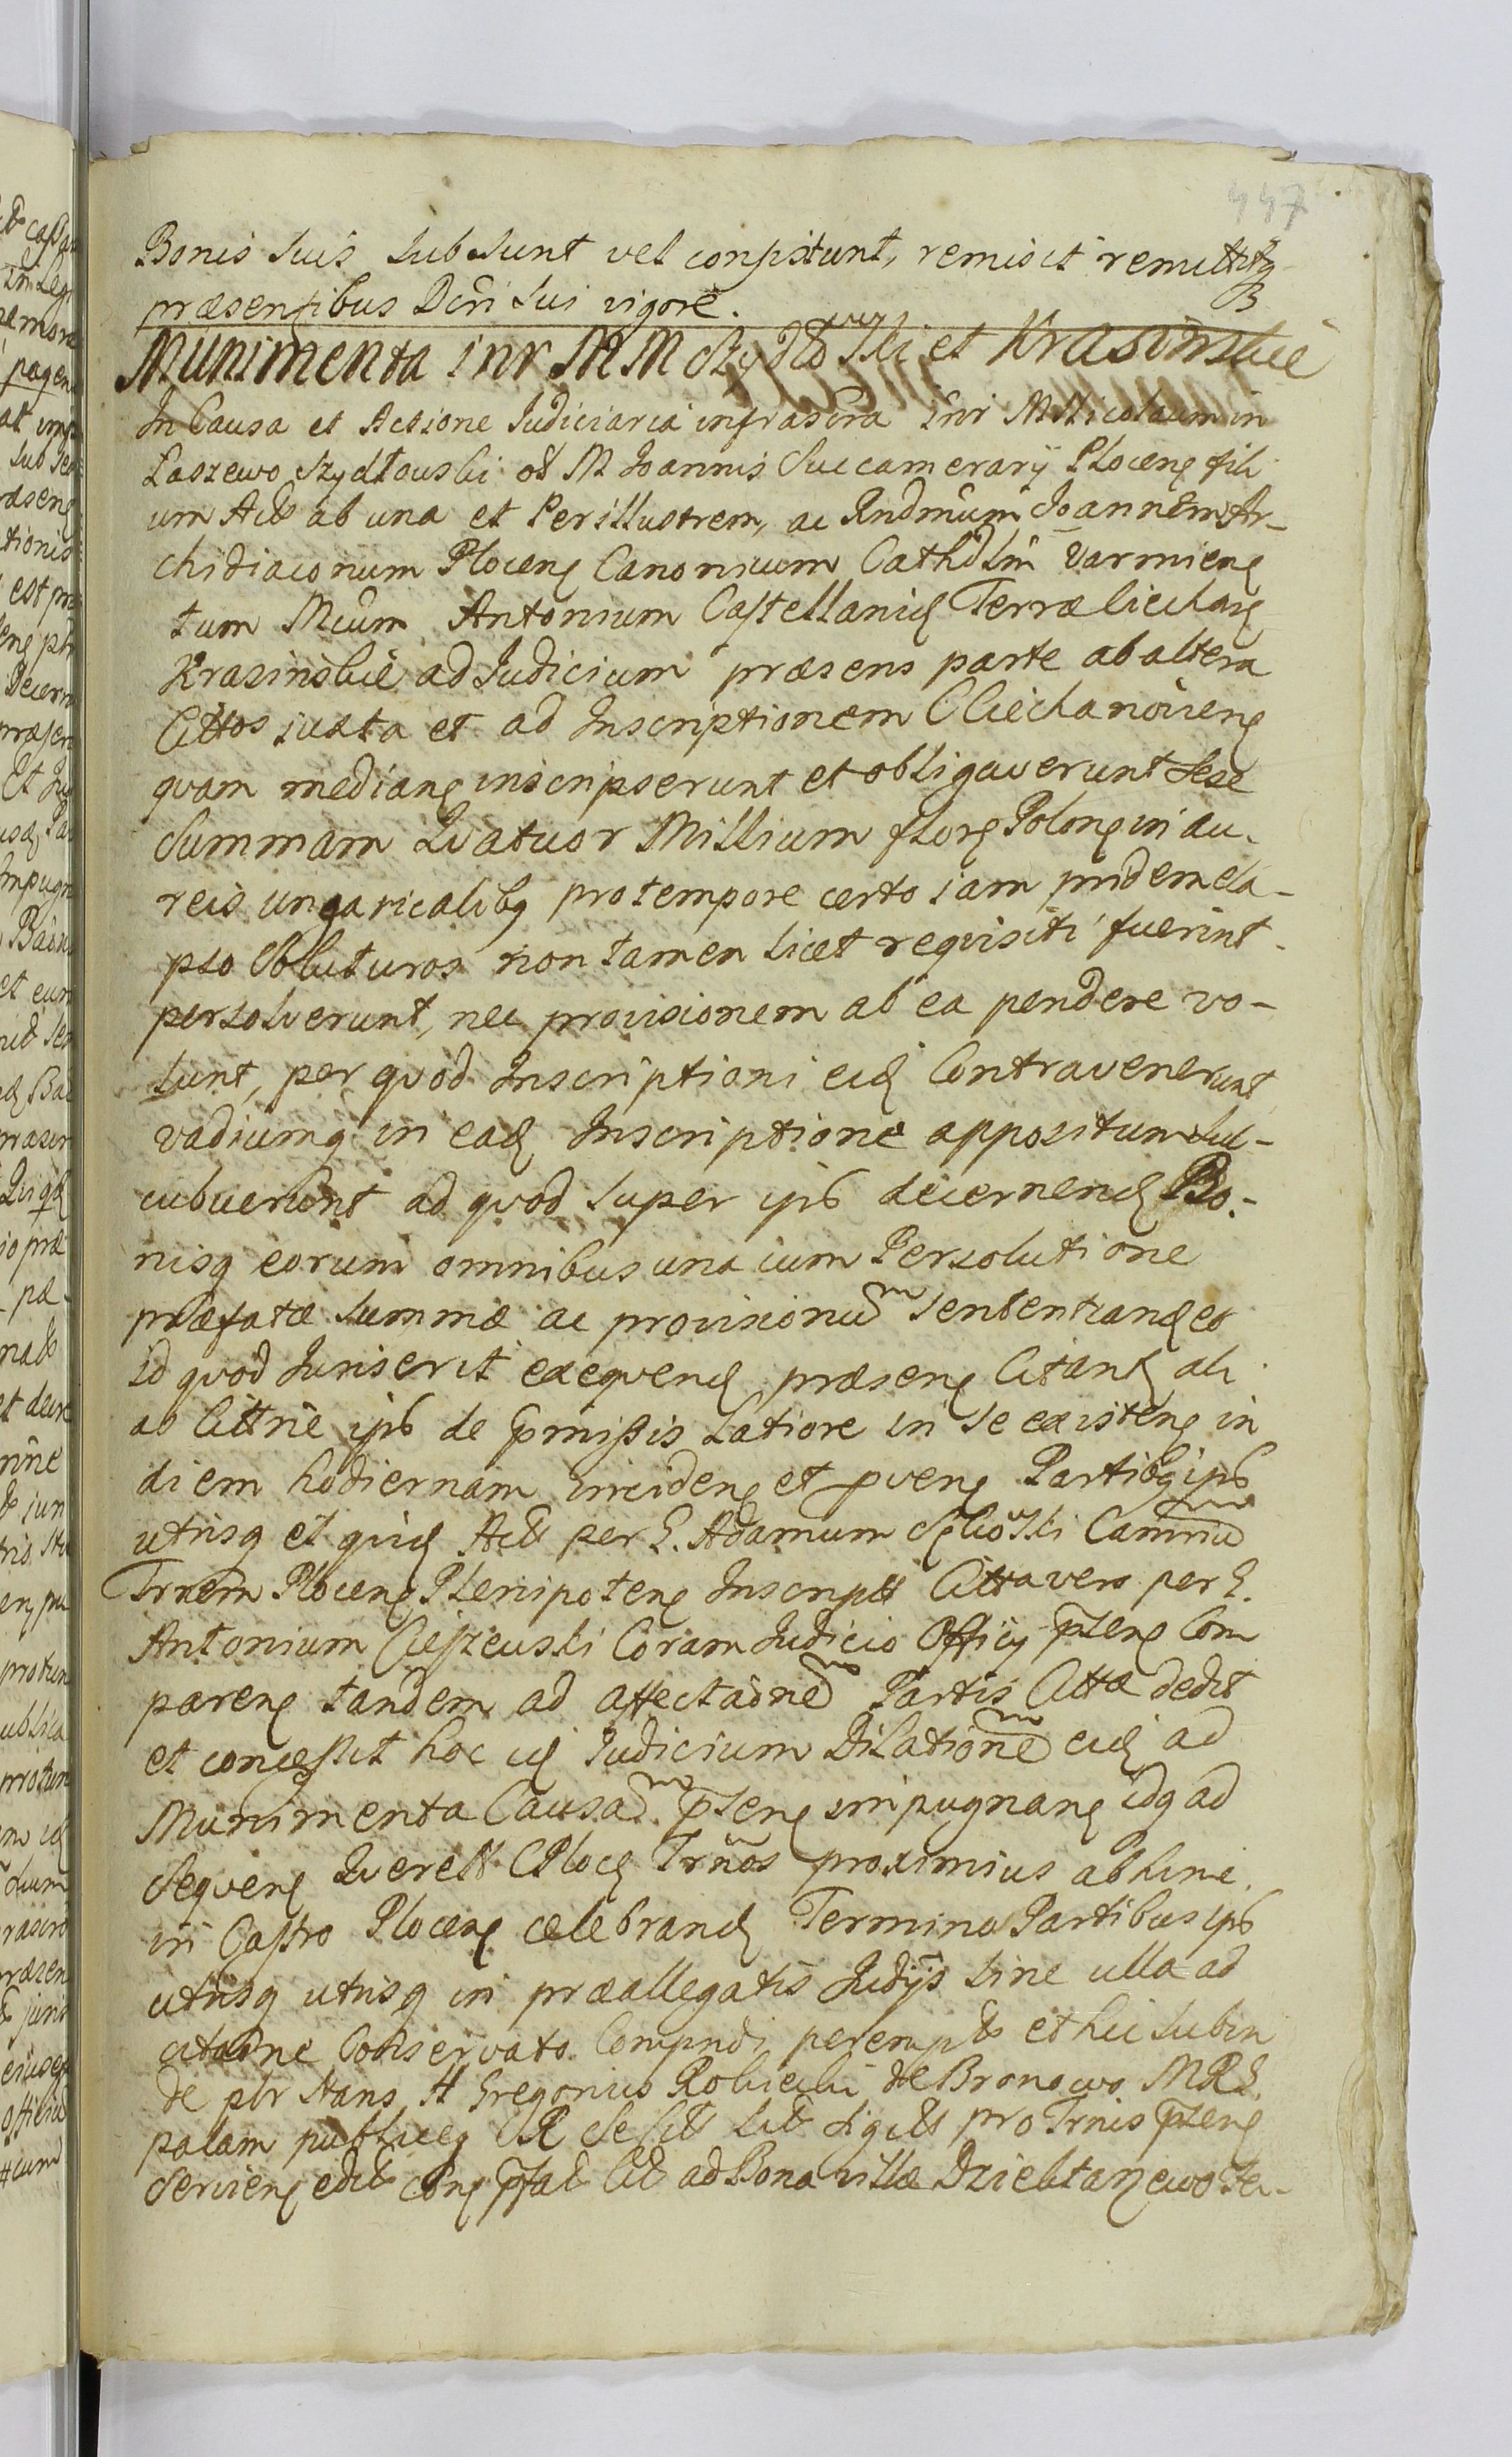 447
Bonis suis subsunt vel consistunt, remisit remittitq
præsentibus Dcri sui vigore.
Munimenta inr MM Szydłowski et Krasinskie
In Causa et Actione Judiciaria infrascra inr M Nicolaum in
Łaszewo Szydłouski ol M Joannis Succamerarij Ploceng fili
um Act ab una et Perillustrem, ac Rndmum Joannem Ar-
chidiaconum Ploceng Canonicum Cathdlm Varmieng
tum Mcum Antonium Castellanid Terræ Ciechan
Krasinskie ad Judicium præsens parte ab altera
Cittos juxta et ad Inscriptionem Ciechanovieng
qvam mediang inscripserunt et obligaverunt sese
Summam Qvatuor Millium flore Polong in au-
reis ungaricalibq pro tempore certo iam pridem ela-
pso soluturos non tamen licet reqvisiti fuerint
persolverunt, nec provisionem ab ea pendere vo-
lunt, per qvod Inscriptioni eid Contravenerunt
vadiumq in ead Inscriptione appositum suc-
cubuerunt ad qvod super ips decernend Bo-
nisq eorum omnibus una cum Persolutione
præfatæ summæ ac provisionu sententiand et
id qvod Juris erit exeqvend præseng Citant ali
as Cittne ips de pmissis latiore in se existeng in
diem hodiernam incideng et pveng Partibq ips
utrisq et qvid Act per G. Adamum Camru
Trnem Ploceng Plenipoteng Inscript Citta vero per G.
Antonium Cieszeuski Coram Judicio Officij pseng Com
pareng tandem ad affectaone Partis Citta dedit
et concessit hoc id Judicium Dilatione eid ad
Munimenta Causa pseng impugnang idq ad
Seqveng Qverel CPloc Trnos proximius abhinc
in Castro Ploceng celebrand Termino Partibus ips
utrisq utrisq in præallegatis Judijs sine ulla ad
citaone Conservato Compndi perempt et hic subin
de pbr stans H Gregorius Robiecki de Bronowo MRG
palam publiceq RR se sit lit sigilt pro Trnis pseng
servieng edit cong pfat Cit ad Bona villæ Dziektarzewo